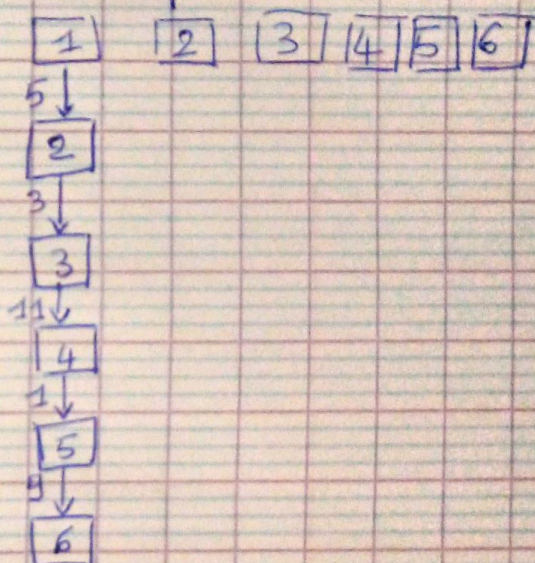 1 2 3 4 5 6
5
2
3
3
11
4
1
5
9
6